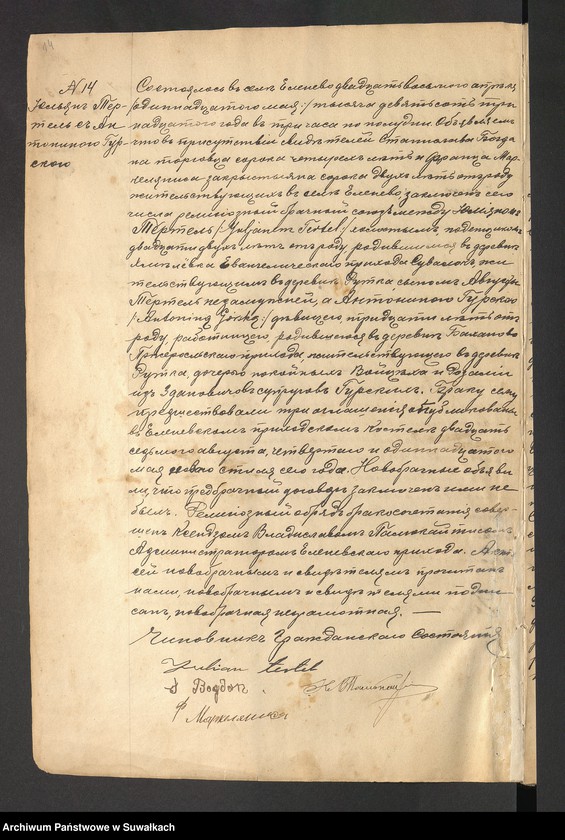 14
№ 14
Юльянъ Тер-
тель съ Ан-
тониною Гур-
скою
Состоялось въ селѣ Еленево двадцать восьмого апрѣля
/одиннадцатого мая:/ тысяча девятьсотъ три-
надцатого года въ три часа по полудни. Объявляемъ
что въ присутствіи свидѣтелей Станислава Богда-
на торговца сорока четырехъ лѣтъ и Франца Мар-
целянися закрыстьяна сорока двухъ лѣтъ отъ роду
жительствующихъ въ селѣ Еленево, заключенъ сего
числа религіозный брачный союзъ между Юліаномъ
Тертель /Juljanem Tertel:/ холостымъ,
двадцати двухъ лѣтъ отъ роду, родившимся въ деревнѣ
Евангелическаго прихода Сувалки, жи-
тельствующимъ въ деревнѣ Рутка сыномъ Августы
Тертель незамужней, а Антониною Гурскою
/Antoniną Górską:/ дѣвицею тридцати лѣтъ отъ
роду, работницею, родившеюся въ деревнѣ
прихода, жительствующею въ деревнѣ
Рутка, дочерью покойныхъ Войцѣха и Розаліи
изъ Здановичовъ супруговъ Гурскихъ. Браку сему
предшествовали три оглашенія опубликованныя
въ Еленевскомъ приходскомъ костелѣ двадцать
седьмого четвертаго и одиннадцатого
мая новаго стиля сего года. Новобрачные объяви-
ли, что предбрачный договоръ заключенъ ими не
былъ. Религіозный обрядъ бракосочетанія совер-
шенъ Ксендзомъ Владиславомъ
Администраторомъ Еленевскаго прихода. Актъ
сей новобрачнымъ и свидѣтелямъ прочитанъ
нами, новобрачнымъ и свидѣтелями подпи-
санъ, новобрачная неграмотная. —
Чиновникъ Гражданскаго Состоянія
Julian tertel
S Bogdan
F
Archiwum Państwowe w Suwałkach